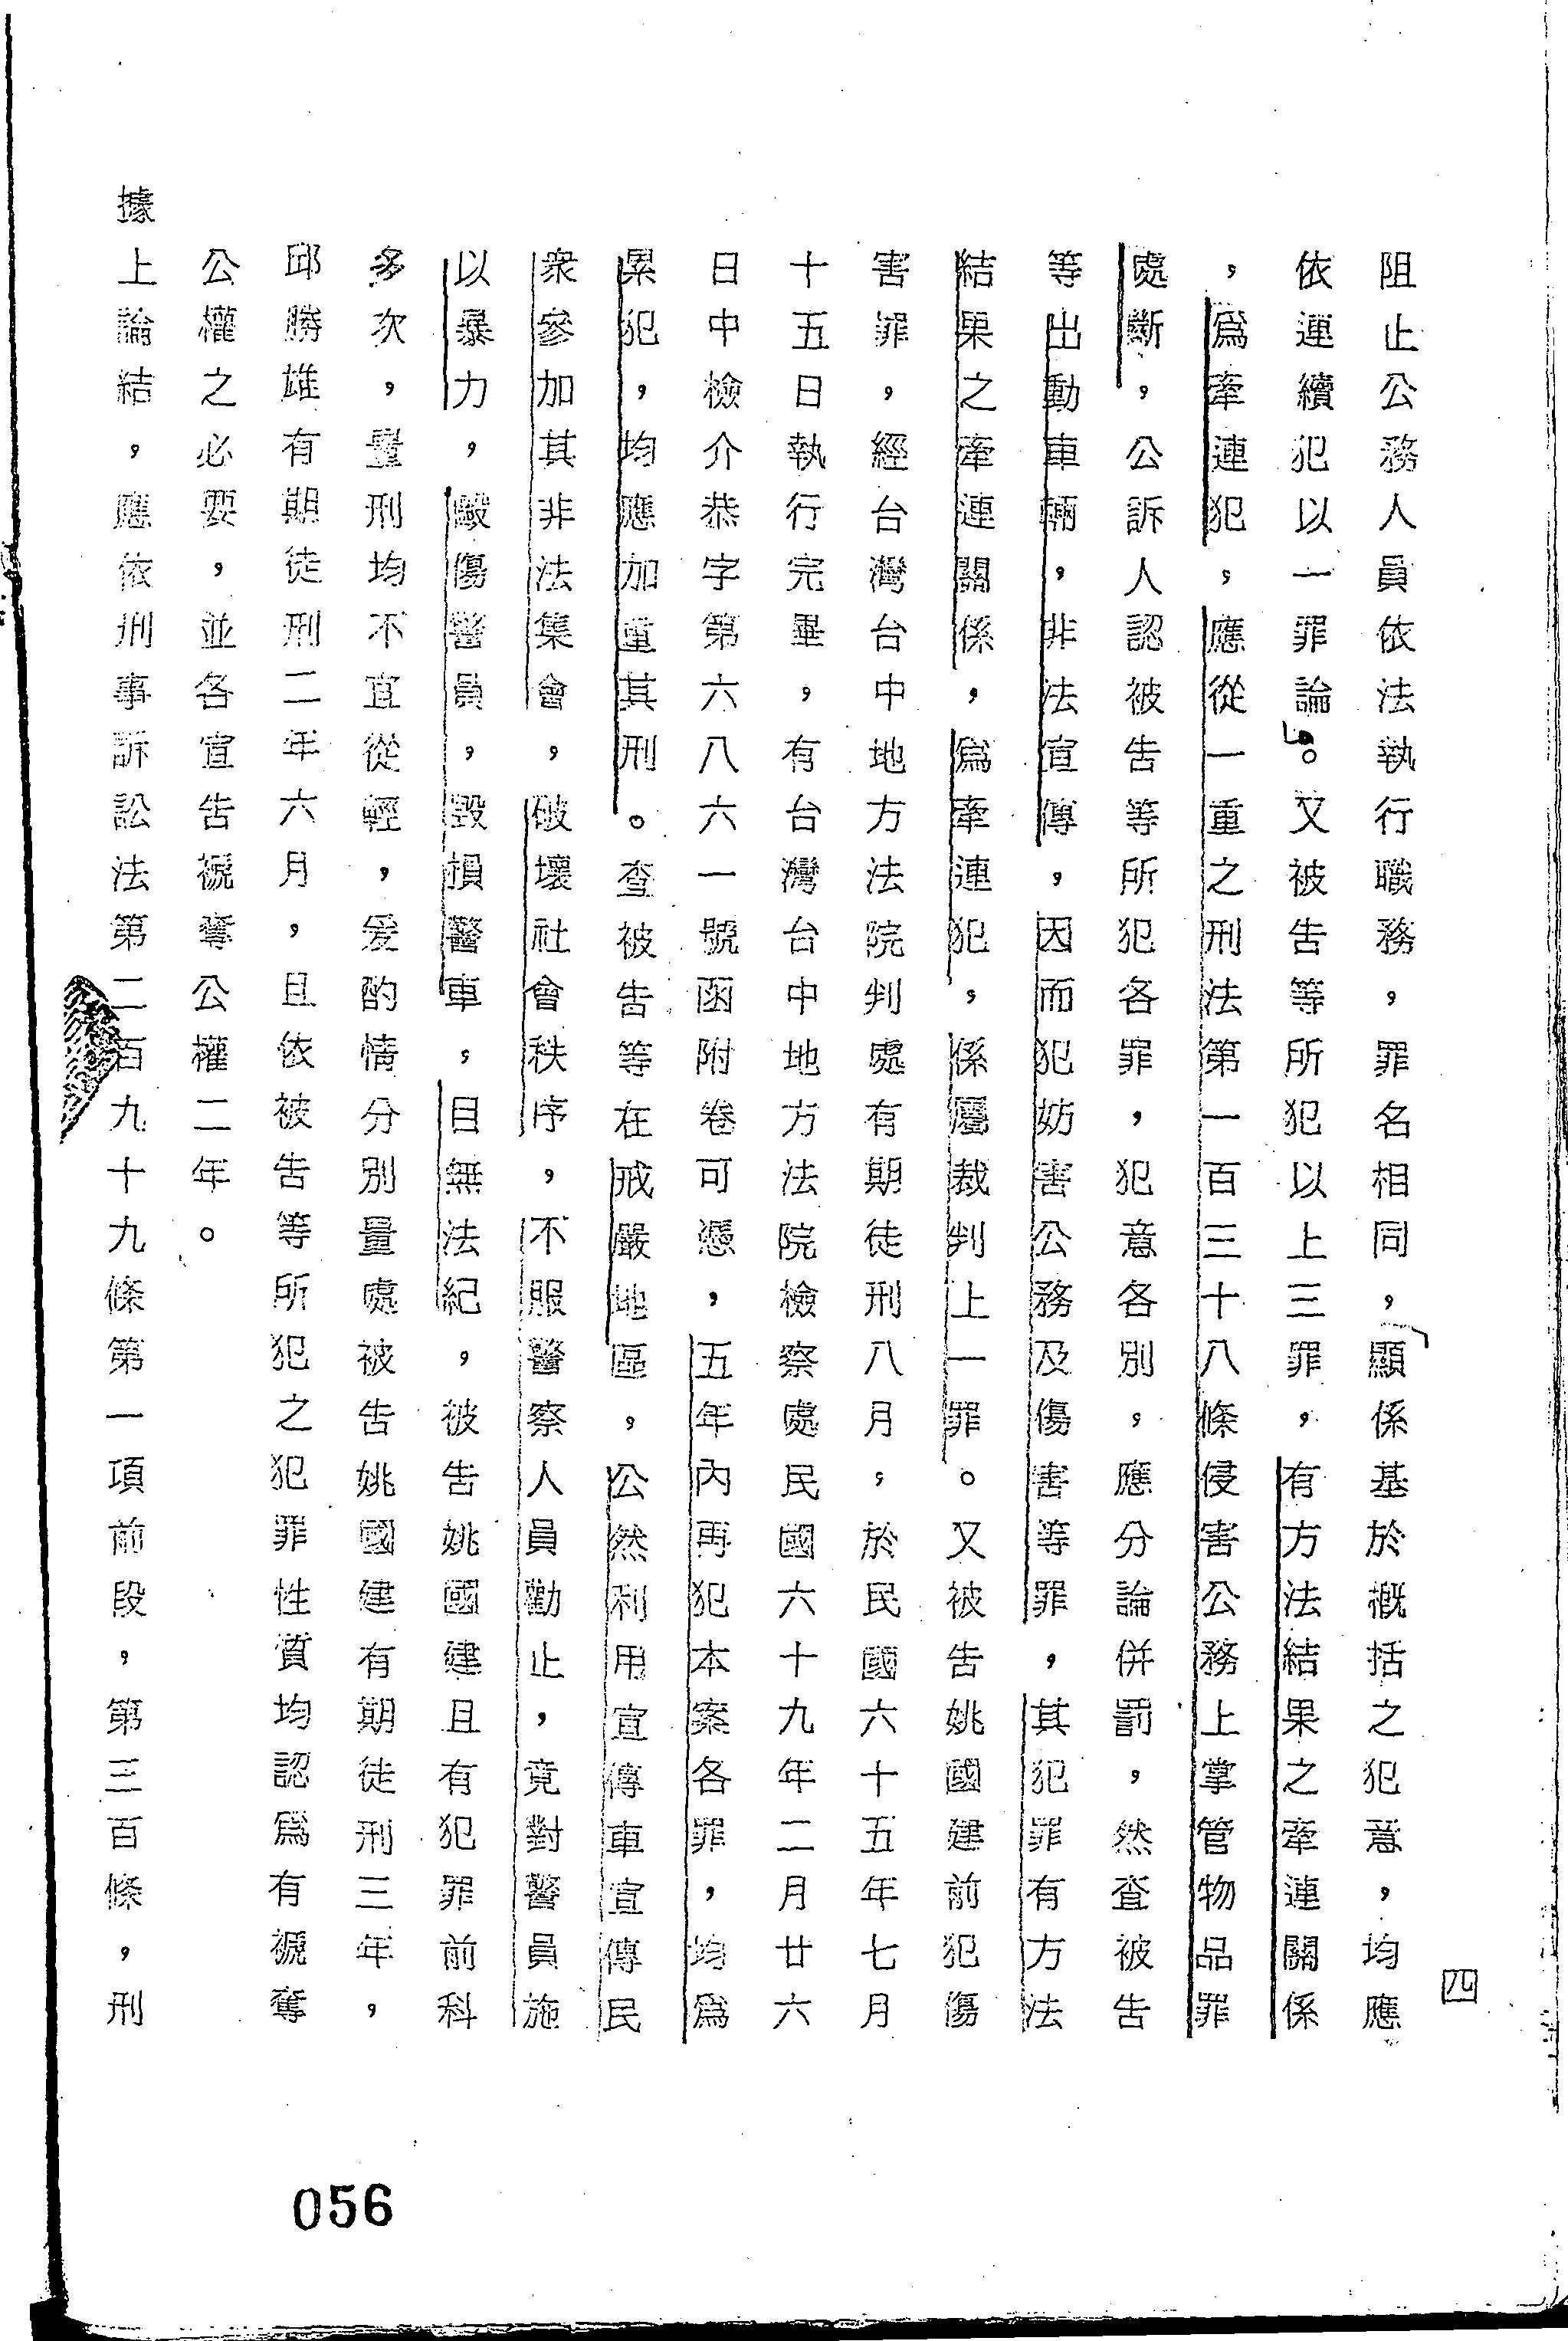 四
阻止公務人員依法執行職務，罪名相同，顯係基於概括之犯意，均應
依連續犯以一罪論。又被告等所犯以上三罪，有方法結果之牽連關係
，爲牽連犯，應從一重之刑法第一百三十八條侵害公務上掌管物品罪
處斷，公訴人認被告等所犯各罪，犯意各別，應分論併罰，然查被告
等出動車輛，非法宣傳，因而犯妨害公務及傷害等罪，其犯罪有方法
結果之牽連關係，爲牽連犯，係屬裁判上一罪。又被告姚國建前犯傷
害罪，經台灣台中地方法院判處有期徒刑八月，於民國六十五年七月
十五日執行完畢，有台灣台中地方法院檢察處民國六十九年二月廿六
日中檢介恭字第六八六一號函附卷可憑，五年內再犯本案各罪，均爲
累犯，均應加重其刑。查被告等在戒嚴地區，公然利用宣傳車宣傳民
衆參加其非法集會，破壞社會秩序，不服警察人員勸止，竟對警員施
以暴力，毆傷警員，毀損警車，目無法紀，被告姚國建且有犯罪前科
多次，量刑均不宜從輕，爰酌情分別量處被告姚國建有期徒刑三年，
邱勝雄有期徒刑二年六月，且依被告等所犯之犯罪性質均認爲有褫奪
公權之必要，並各宣告褫奪公權二年。
據上論結，應依刑事訴訟法第二百九十九條第一項前段，第三百條，刑
056